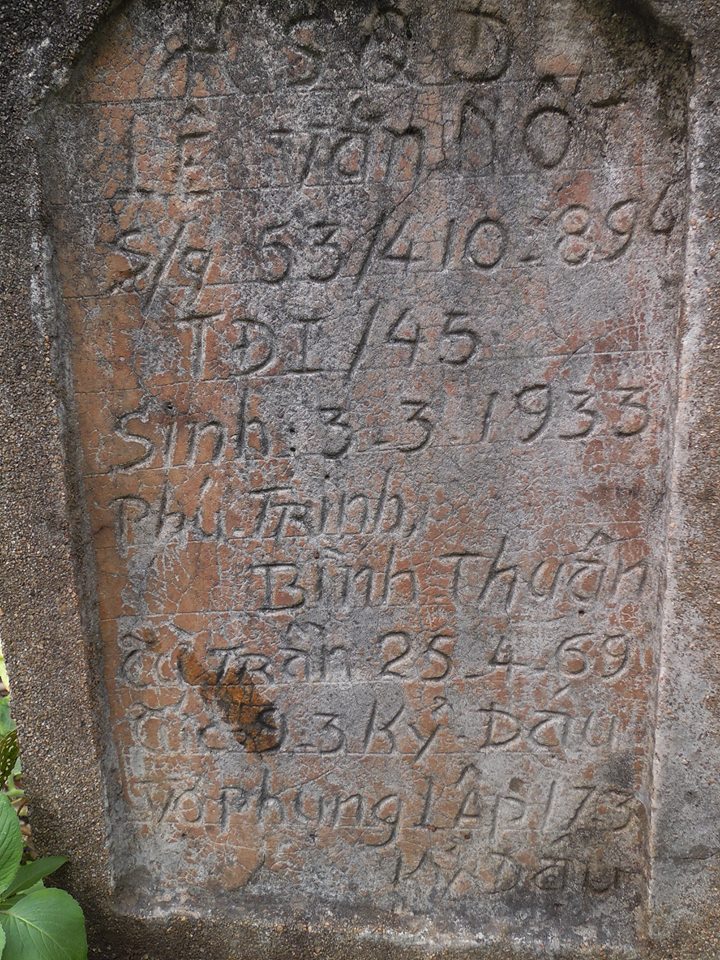 SQD
LÊ Văn ĐỐT
S/q 53/410.894
TĐI/45
Sinh: 3.3.1933
Phú.Trinh,
Bình Thuận
Tử Trần 25-4-69
9-3 Kỷ.Dáu
Vợ Phụng Lập 1/73
Kỷ Dáu